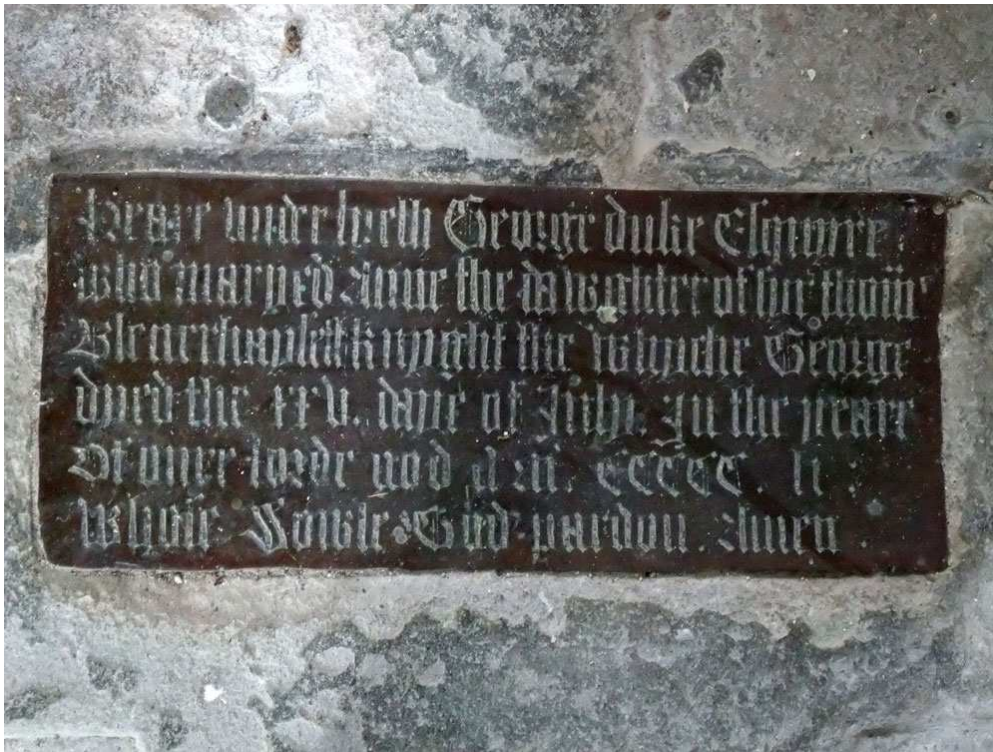 Heare under lyeth George duke Esquyre
who maryed Anne the dawghter of sir thom̃s
Blenerhaysett knyght the whyche George
dyed the xxvi. daye of July. In the yeare
Of oure lorde god a M. CCCCC. li
whose Sowle God pardon. Amen